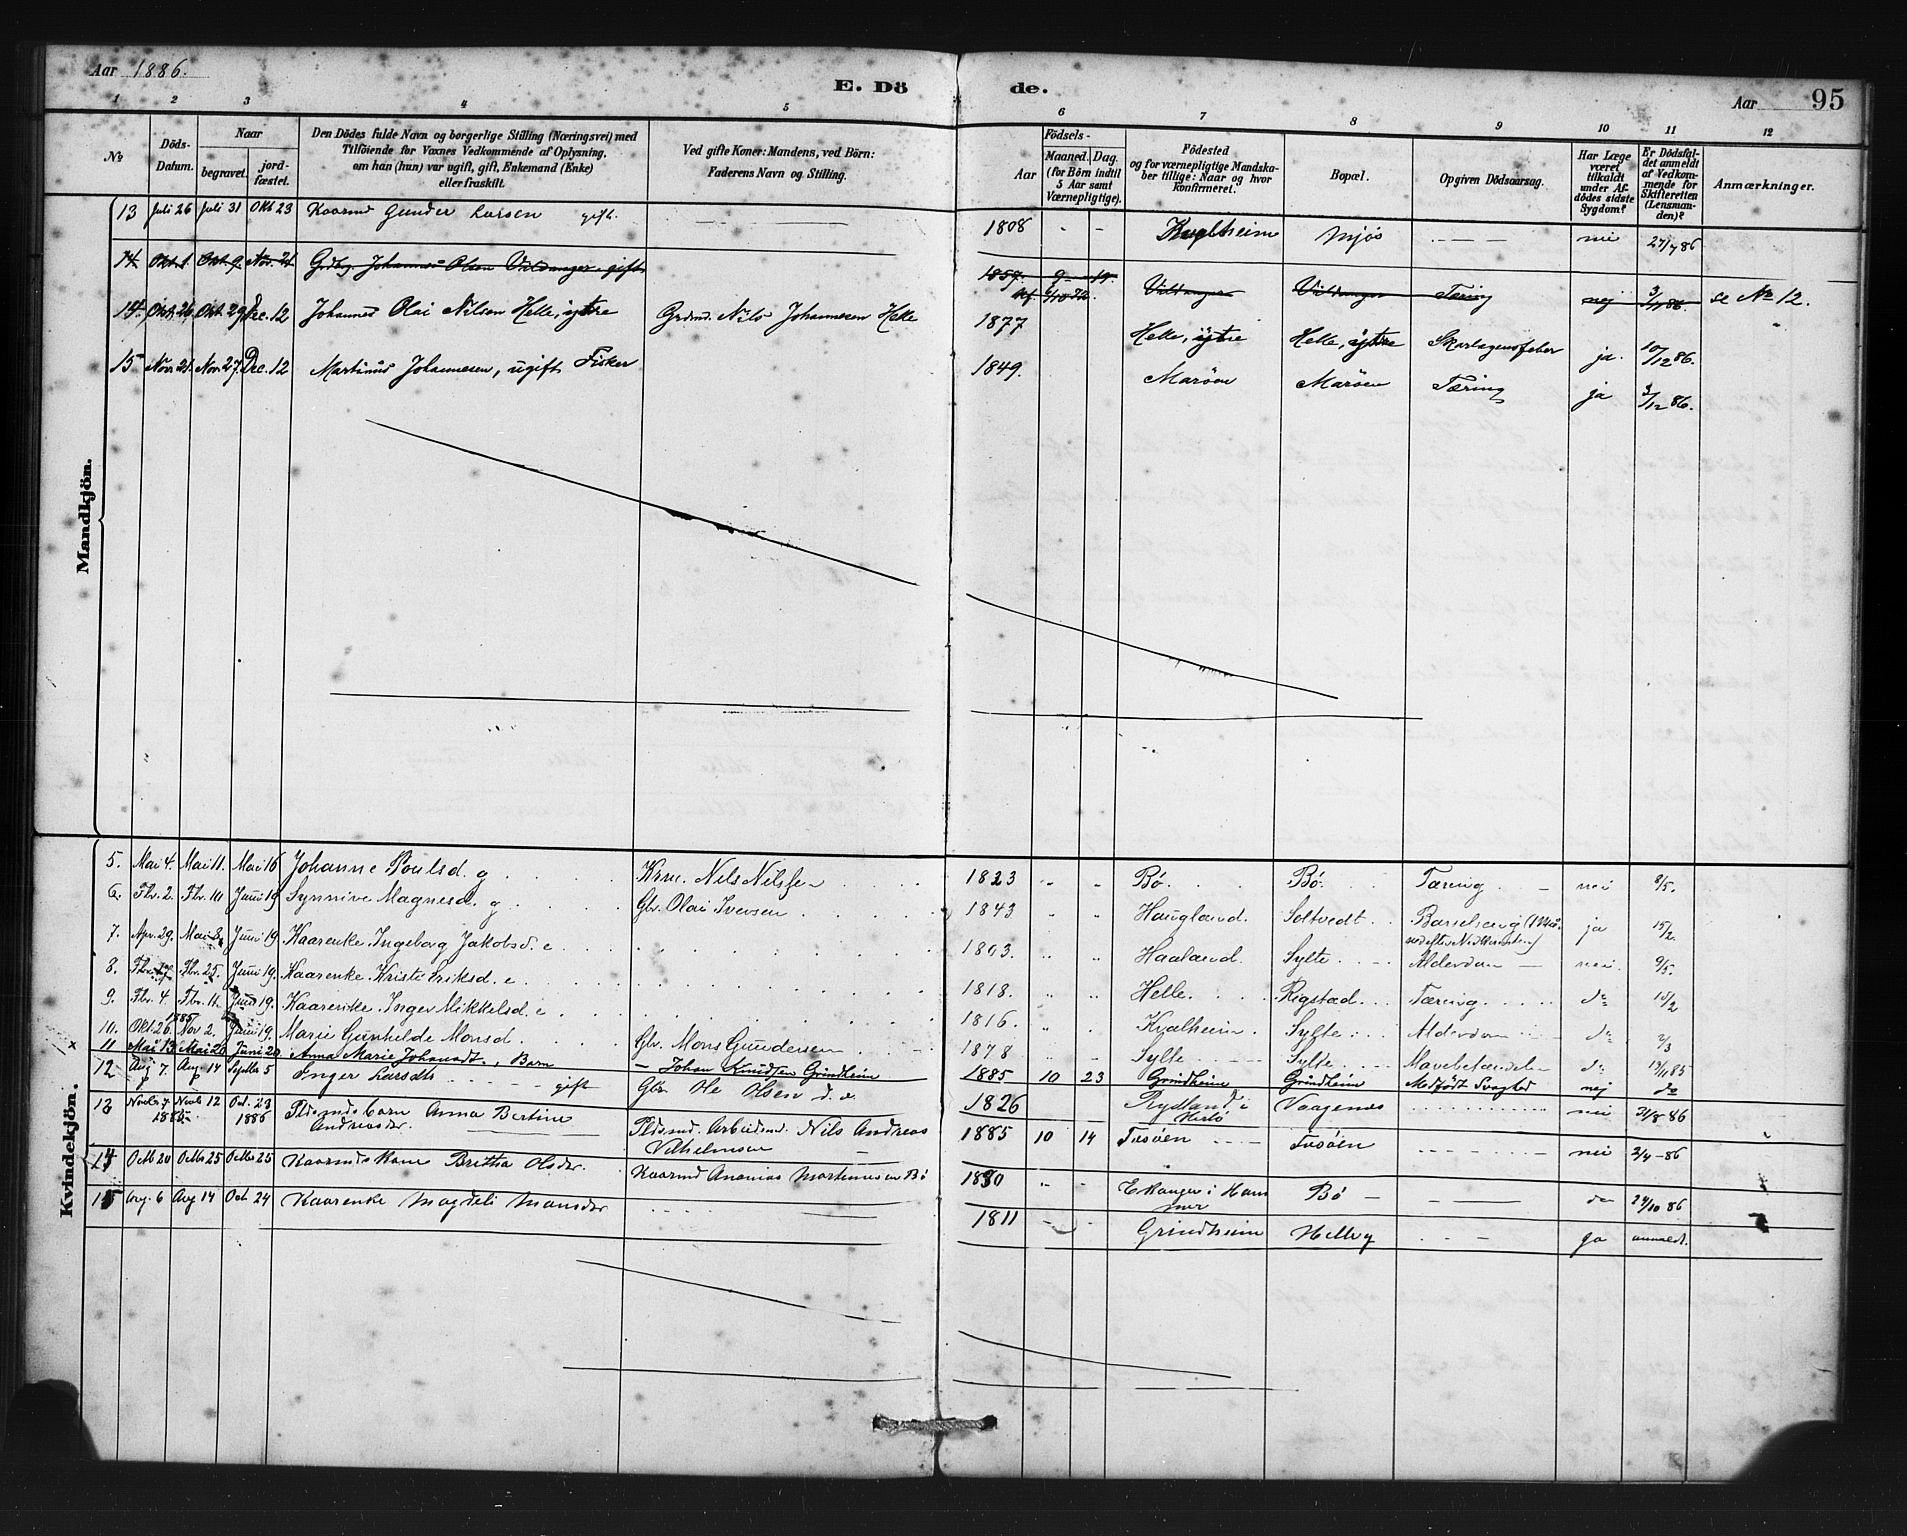 Aar 1886.
E. Dö
de.
Aar 95
1 2 3 4 5 6 7 8 9 10 11 12
No
Döds-Datum.
Naar
begravet.
jord-fæstet.
Den Dödes fulde Navn og borgerlige Stilling (Næringsvei) med
Tilföiende for Voxnes Vedkommende af Oplysning,
om han (hun) var ugift, gift, Enkemand (Enke)
eller fraskilt.
Ved gifte Koner: Mandens, ved Börn:
Faderens Navn og Stilling.
Födsels-
Aar
Maaned. Dag.
(for Börn indtil
5 Aar samt
Værnepligtige).
Födested
og for værnepligtige Mandska-
ber tillige: Naar og hvor
konfirmeret.
Bopæl.
Opgiven Dödsaarsag.
Har Læge
været
tilkaldt
under Af-
dödes sidste
Sygdom?
Er Dödsfal-
det anmeldt
af Vedkom-
mende for
Skifteretten
(Lensman-
den)?
Anmærkninger.
Mandkjön.
13 Juli 26 Juli 31 Okt 23 Kaarmd Gunder Larsen gift. 1808 - - Kvalheim Mjös - - - nei 27/7 86
14 Okt. 1 Okt. 9. Nov. 21 Grdbg. Johannes Olsen Valdanger gift 1857. 9 19. Valdanger Valdanger Tæring nej se No 12.
14 Okt. 26 Okt. 29 Dec. 12 Johannes Olai Nilsen Helle, ytre Grdmd. Nils Johannesen Helle 1877 Helle, ytre Helle, ytre Skarlagensfeber ja. 10/12 86.
15 Nov. 21. Nov. 27. Dec. 12 Martinus Johannesen, ugift Fisker 1849. Maröen Maröen Tæring ja 3/12 86.
Kvindekjön.
5. Mai 4. Mai 11. Mai 16 Johanne Poulsd. g Krm. Nils Nilsen 1823 " " Bø. Bø. Tæring. nei 8/5.
6. Fbr. 2. Fbr. 10 Juni 19 Synnive Magnesd. g Gbr. Olai Iversen 1843 " " Haugland. Soltvedt Barselseng ja 15/2.
7. Apr. 29. Mai 8. Juni 19. Kaarenke Ingeborg Jakobsd. e 1803. " " Haaland. Sylte. Alderdom nei. 9/5.
8. Fbr. 17. Fbr. 25. Juni 19. Kaarenke Kristi Eriksd. e. 1818. " " Helle. Rigstad. Tæring. do
9. Fbr. 4. Fbr. 11. Juni 19. Kaarenke. Inger Mikkelsd. e 1816. " " Kvalheim. Sylte. Alderdom do 2/3
10. Okt. 26. 1885 Nov 2. Juni 19. Marie Gunhilde Monsd. Gbr. Mons Gundersen 1878 Sylte Sylte. Mavebetændelse do
x 11 Mai 13 Mai 20 Juni 20 Anna Marie Johansdt., Barn Johan Knudsen Grindheim 1885 10 23 Grindheim Grindheim Medfödt Svaghed nej do
12 Aug 7. Aug 14 Septbr 5 Inger Larsdtr gift Gbr. Ole Olsen 1826 Rydland i Herlö Vaagenes nei 31/8 86
13 Novbr 7 Novbr 12 1885 Oct. 23 1886 Pldsmds barn Anna Bertine
Andreasdr. Pldsmd. Arbeidsmd. Nils Andreas
Vilhelmsen 1885 10 14 Tusöen Tusöen nei 3/4-86
14 Octb 20 Octb 25 Octb 25 Kaarmdskone Britha Olsdr. Kaarmd Ananias Mortensen Bö 1830 " " Ekanger i Ham
mer Bö do 24/10 86
15 Aug. 6 Aug 14 Oct. 24 Kaarenke Magdeli Monsdr 1811 Grindheim Helle y ja anmeldt.